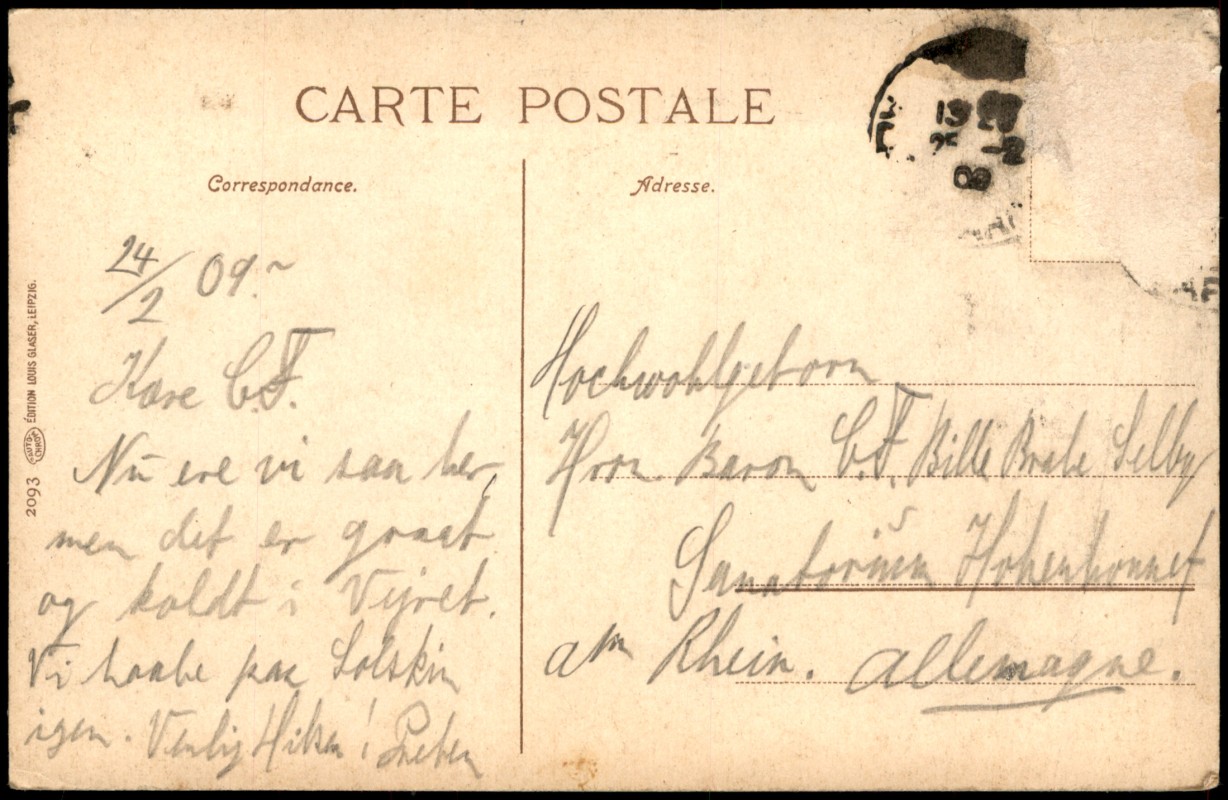 CARTE POSTALE
Correspondance.
Adresse.
24/2 09.
Kære C.F.
Nu ere vi saa her,
men det er graat
og koldt i Vejret.
Vi haabe paa Solskin
igen. Venlig Hilsen! Preben
Hochwohlgeborn
Hrrn Baron C.F. Bille Brahe Selby
Sanatorium Hohenhonnef
am Rhein. Allemagne.
2093
AUTO-CHROM
ÉDITION LOUIS GLASER, LEIPZIG.